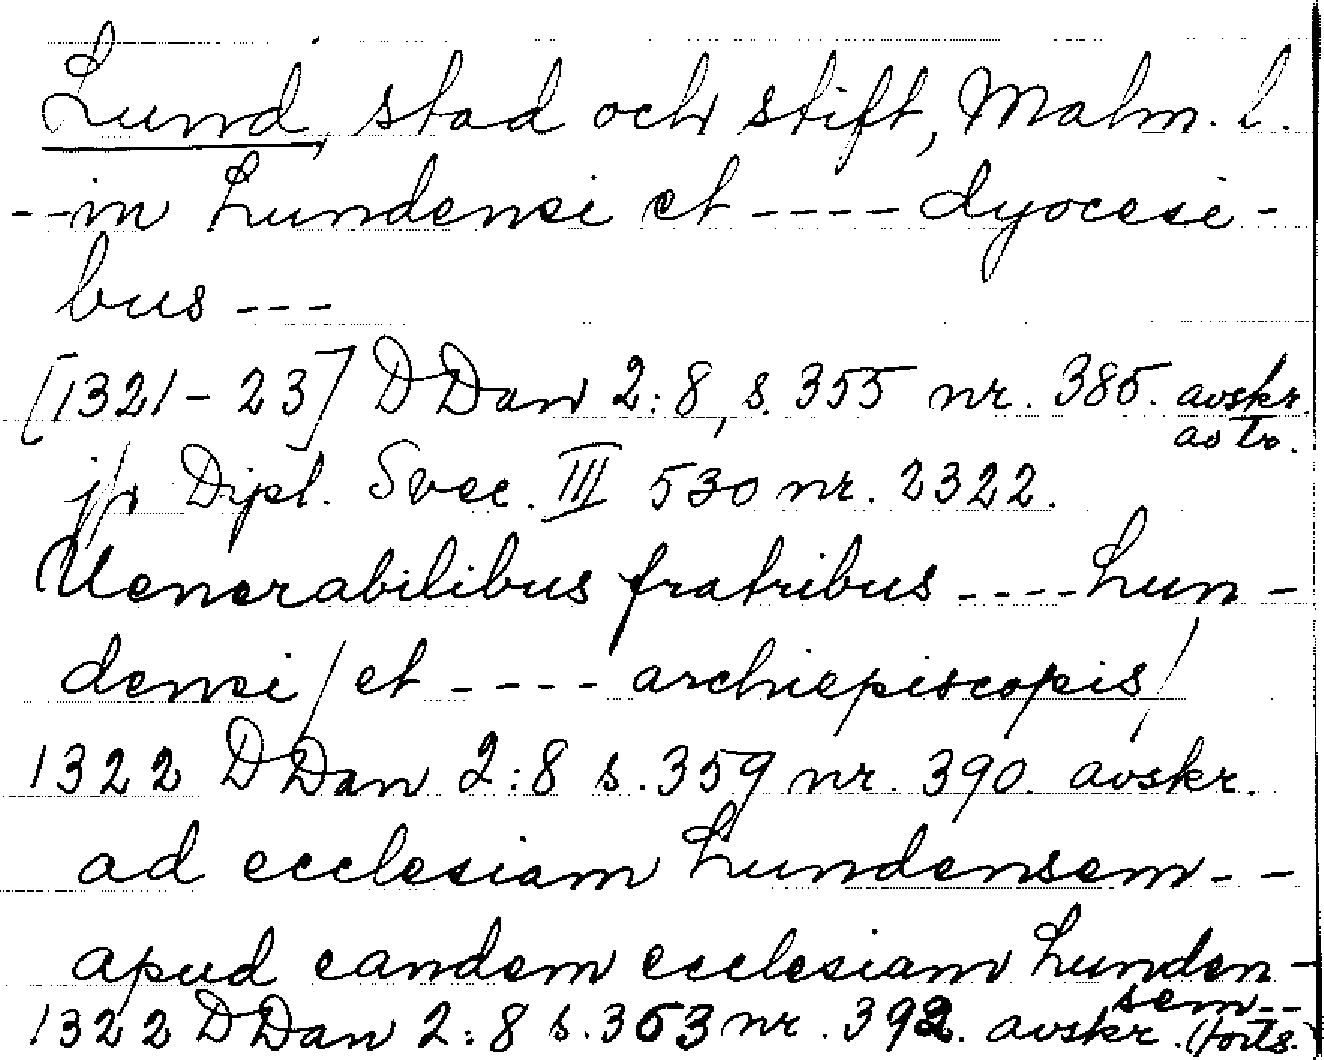 Lund, stad och stift, Malm. l.
--in Lundensi et ---- dyocesi-
bus ---
[1321-23] DDan 2:8, s. 355 nr. 385. avskr.
av tr.
jfr Dipl. Svec. III 530 nr. 2322.
Uenerabilibus fratribus ---- Lun-
densi/et ---- archiepiscopis/
1322 DDan 2:8 s. 359 nr. 390. avskr.
ad ecclesiam Lundensem--
apud eandem ecclesiam Lunden-
sem--
1322 DDan 2:8 s. 363 nr. 392. avskr. (forts.)